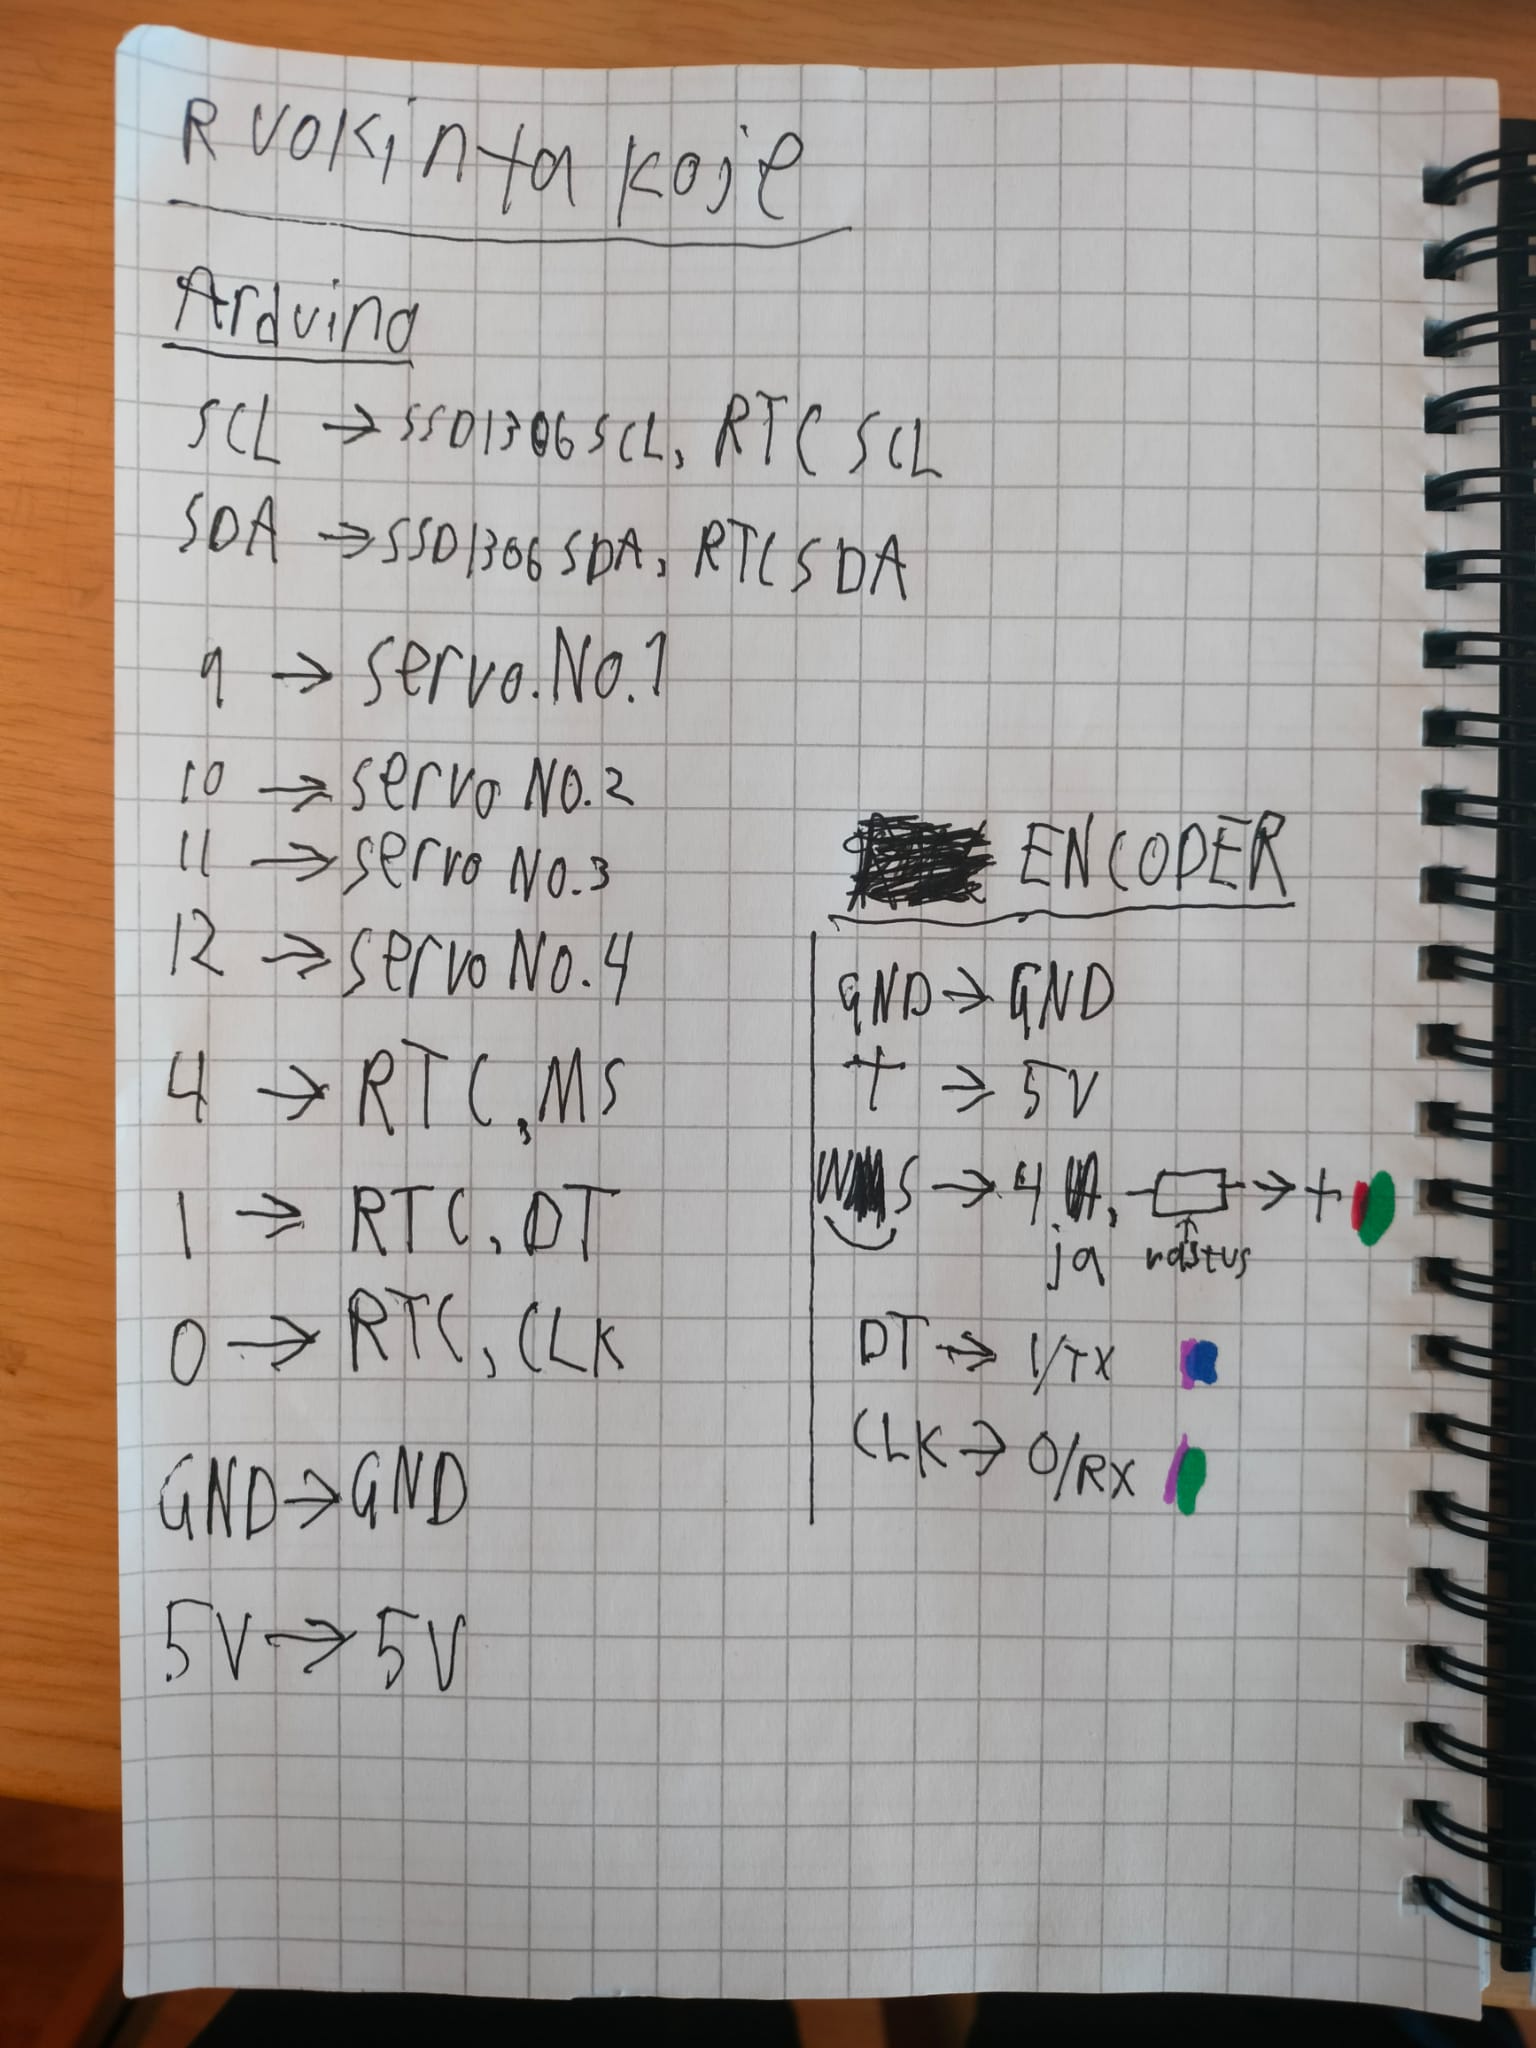 Rvokinta koje
Arduino
SCL → SSD1306 SCL, RTC SCL
SDA → SSD1306 SDA, RTC SDA
9 → servo.No.1
10 → servo No.2
11 → servo No.3
12 → servo No.4
4 → RTC, MS
1 → RTC, DT
0 → RTC, CLK
GND → GND
5V → 5V
ENCODER
GND → GND
+ → 5V
S → 4 → +
ja
DT → 1/TX
CLK → 0/RX